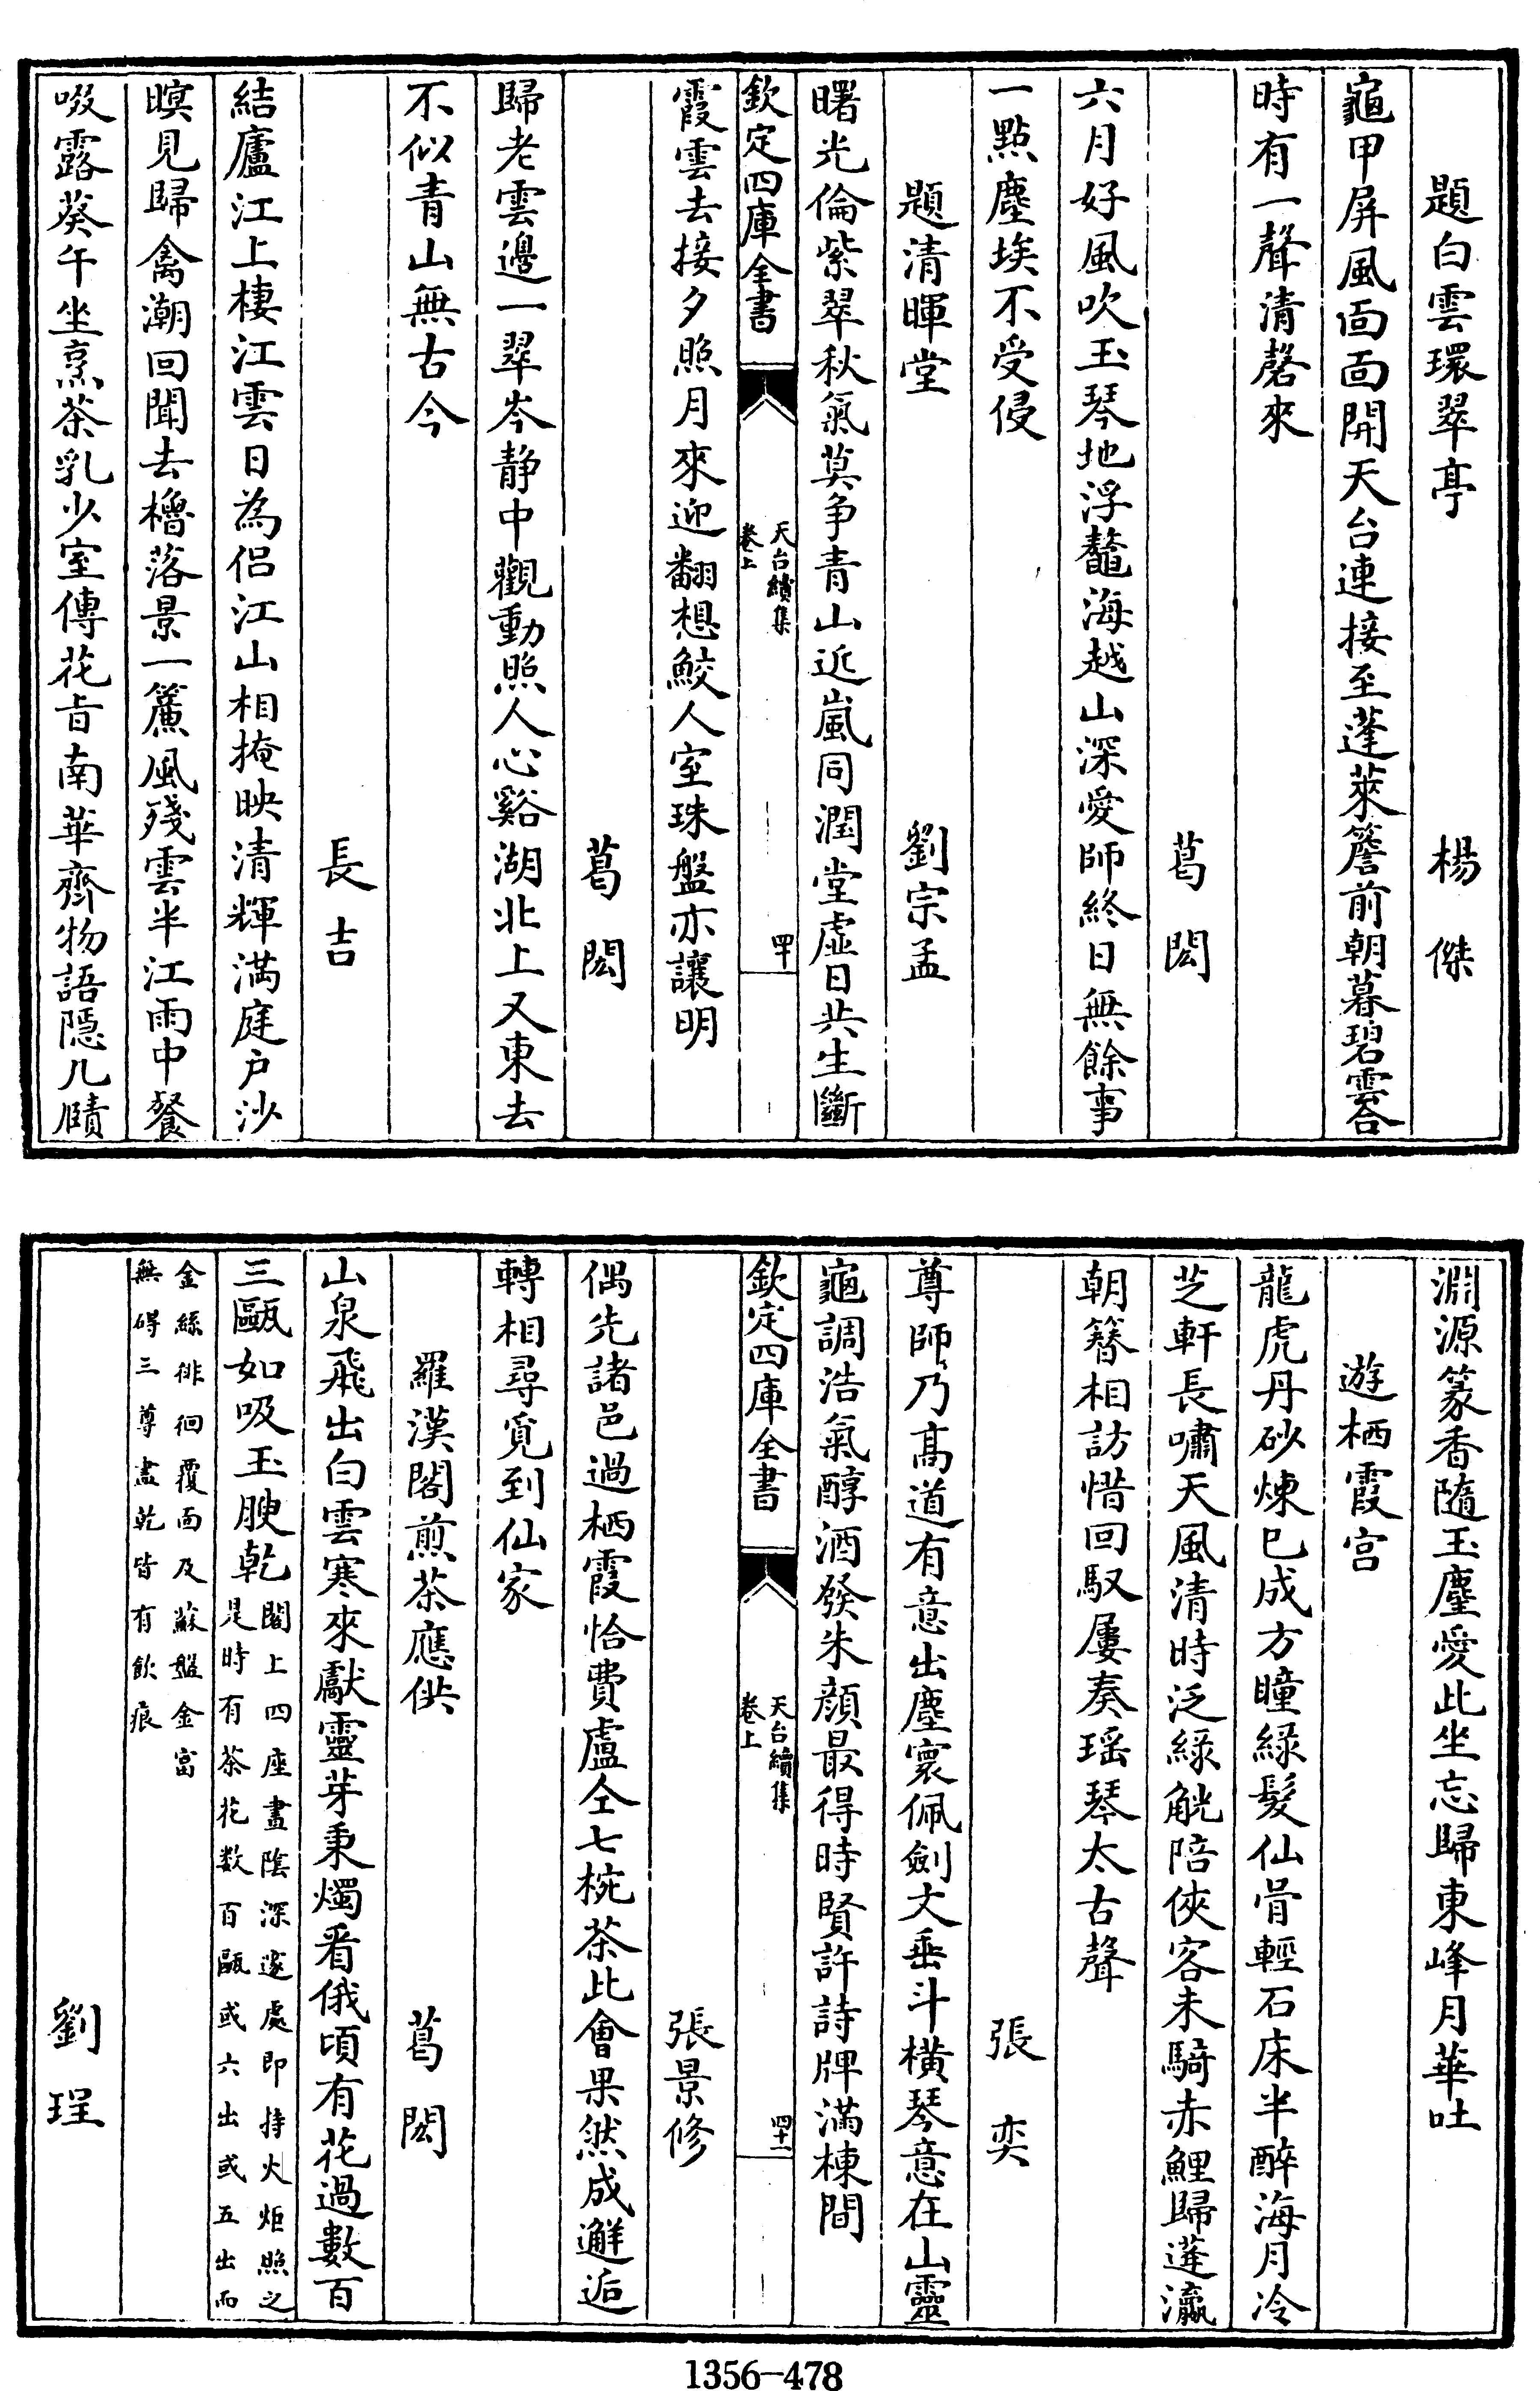 題白雲環翠亭　楊傑
龜甲屏風面面開天台連接至蓬萊簷前朝暮碧雲合
時有一聲清磬來
葛閎
六月好風吹玉琴地浮鼇海越山深愛師終日無餘事
一點塵埃不受侵
題清暉堂　劉宗孟
曙光倫紫翠秋氣莫争青山近嵐同潤堂虛日共生斷
欽定四庫全書　天台續集卷上　四十
霞雲去接夕照月來迎翻想鮫人室珠盤亦讓明
葛閎
歸老雲邊一翠岑静中觀動照人心谿湖北上又東去
不似青山無古今
長吉
結廬江上棲江雲日為侣江山相掩映清輝满庭户沙
暝見歸禽潮回聞去櫓落景一簾風殘雲半江雨中餐
啜露葵午坐烹茶乳少室傳花旨南華齊物語隠几賾
淵源篆香隨玉麈愛此坐忘歸東峰月華吐
遊栖霞宫
龍虎丹砂煉已成方瞳緑髮仙骨輕石床半醉海月冷
芝軒長嘯天風清時泛緑觥陪俠客未騎赤鯉歸蓬瀛
朝簮相訪惜回馭屢奏瑶琴太古聲
張奕
尊師乃髙道有意出塵寰佩劍文垂斗横琴意在山靈
龜調浩氣醇酒發朱顔最得時賢許詩牌滿棟間
欽定四庫全書　天台續集卷上　四十一
張景修
偶先諸邑過栖霞恰費盧仝七椀茶此會果然成邂逅
轉相尋覓到仙家
羅漢閣煎茶應供　葛閎
山泉飛出白雲寒來獻靈芽秉燭看俄頃有花過數百
三甌如吸玉腴乾閣上四座畫陰深邃處即持火炬照之是時有茶花数百甌或六出或五出而
金絲徘徊覆面及蘇盤金富無碍三尊盡乾皆有飲痕
劉珵
1356-478